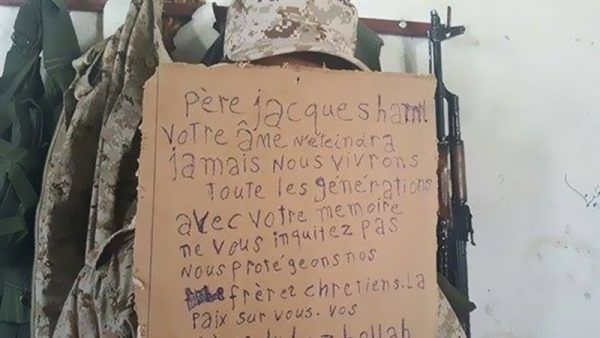 Père jacques hamel
votre âme n'éteindra
jamais nous vivrons
toute les générations
avec votre memoire
ne vous inquitez pas
nous protégeons nos
frèret chretiens. La
paix sur vous. vos